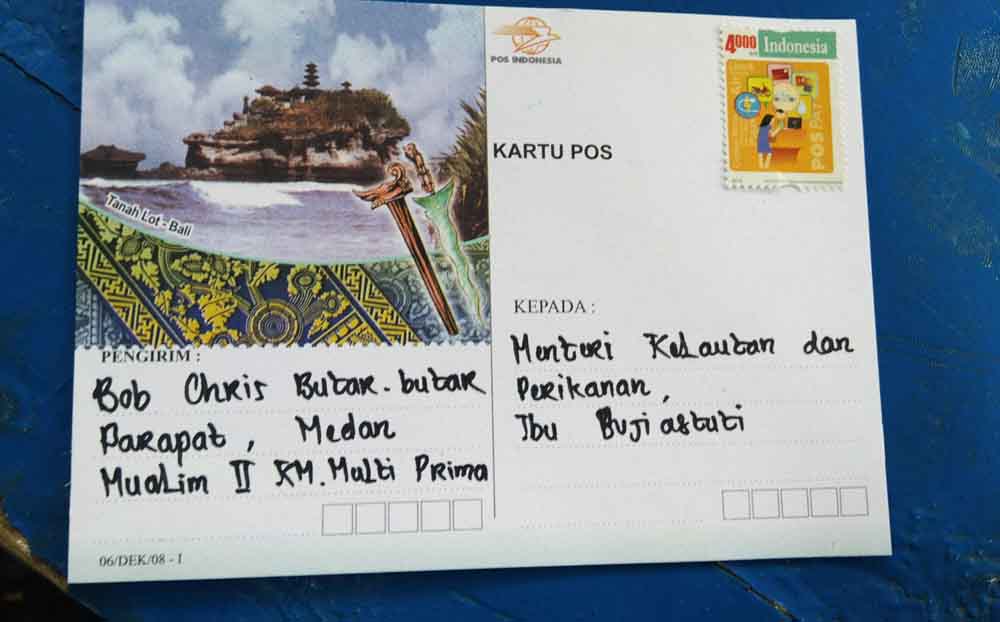 POS INDONESIA
4000
Indonesia
POS PAY
KARTU POS
Tanah Lot - Bali
PENGIRIM :
Bob Chris Butar-butar
Parapat, Medan
Mualim II KM. Multi Prima
06/DEK/08 - I
KEPADA :
Menteri Kelautan dan
Perikanan,
Ibu Pujiastuti